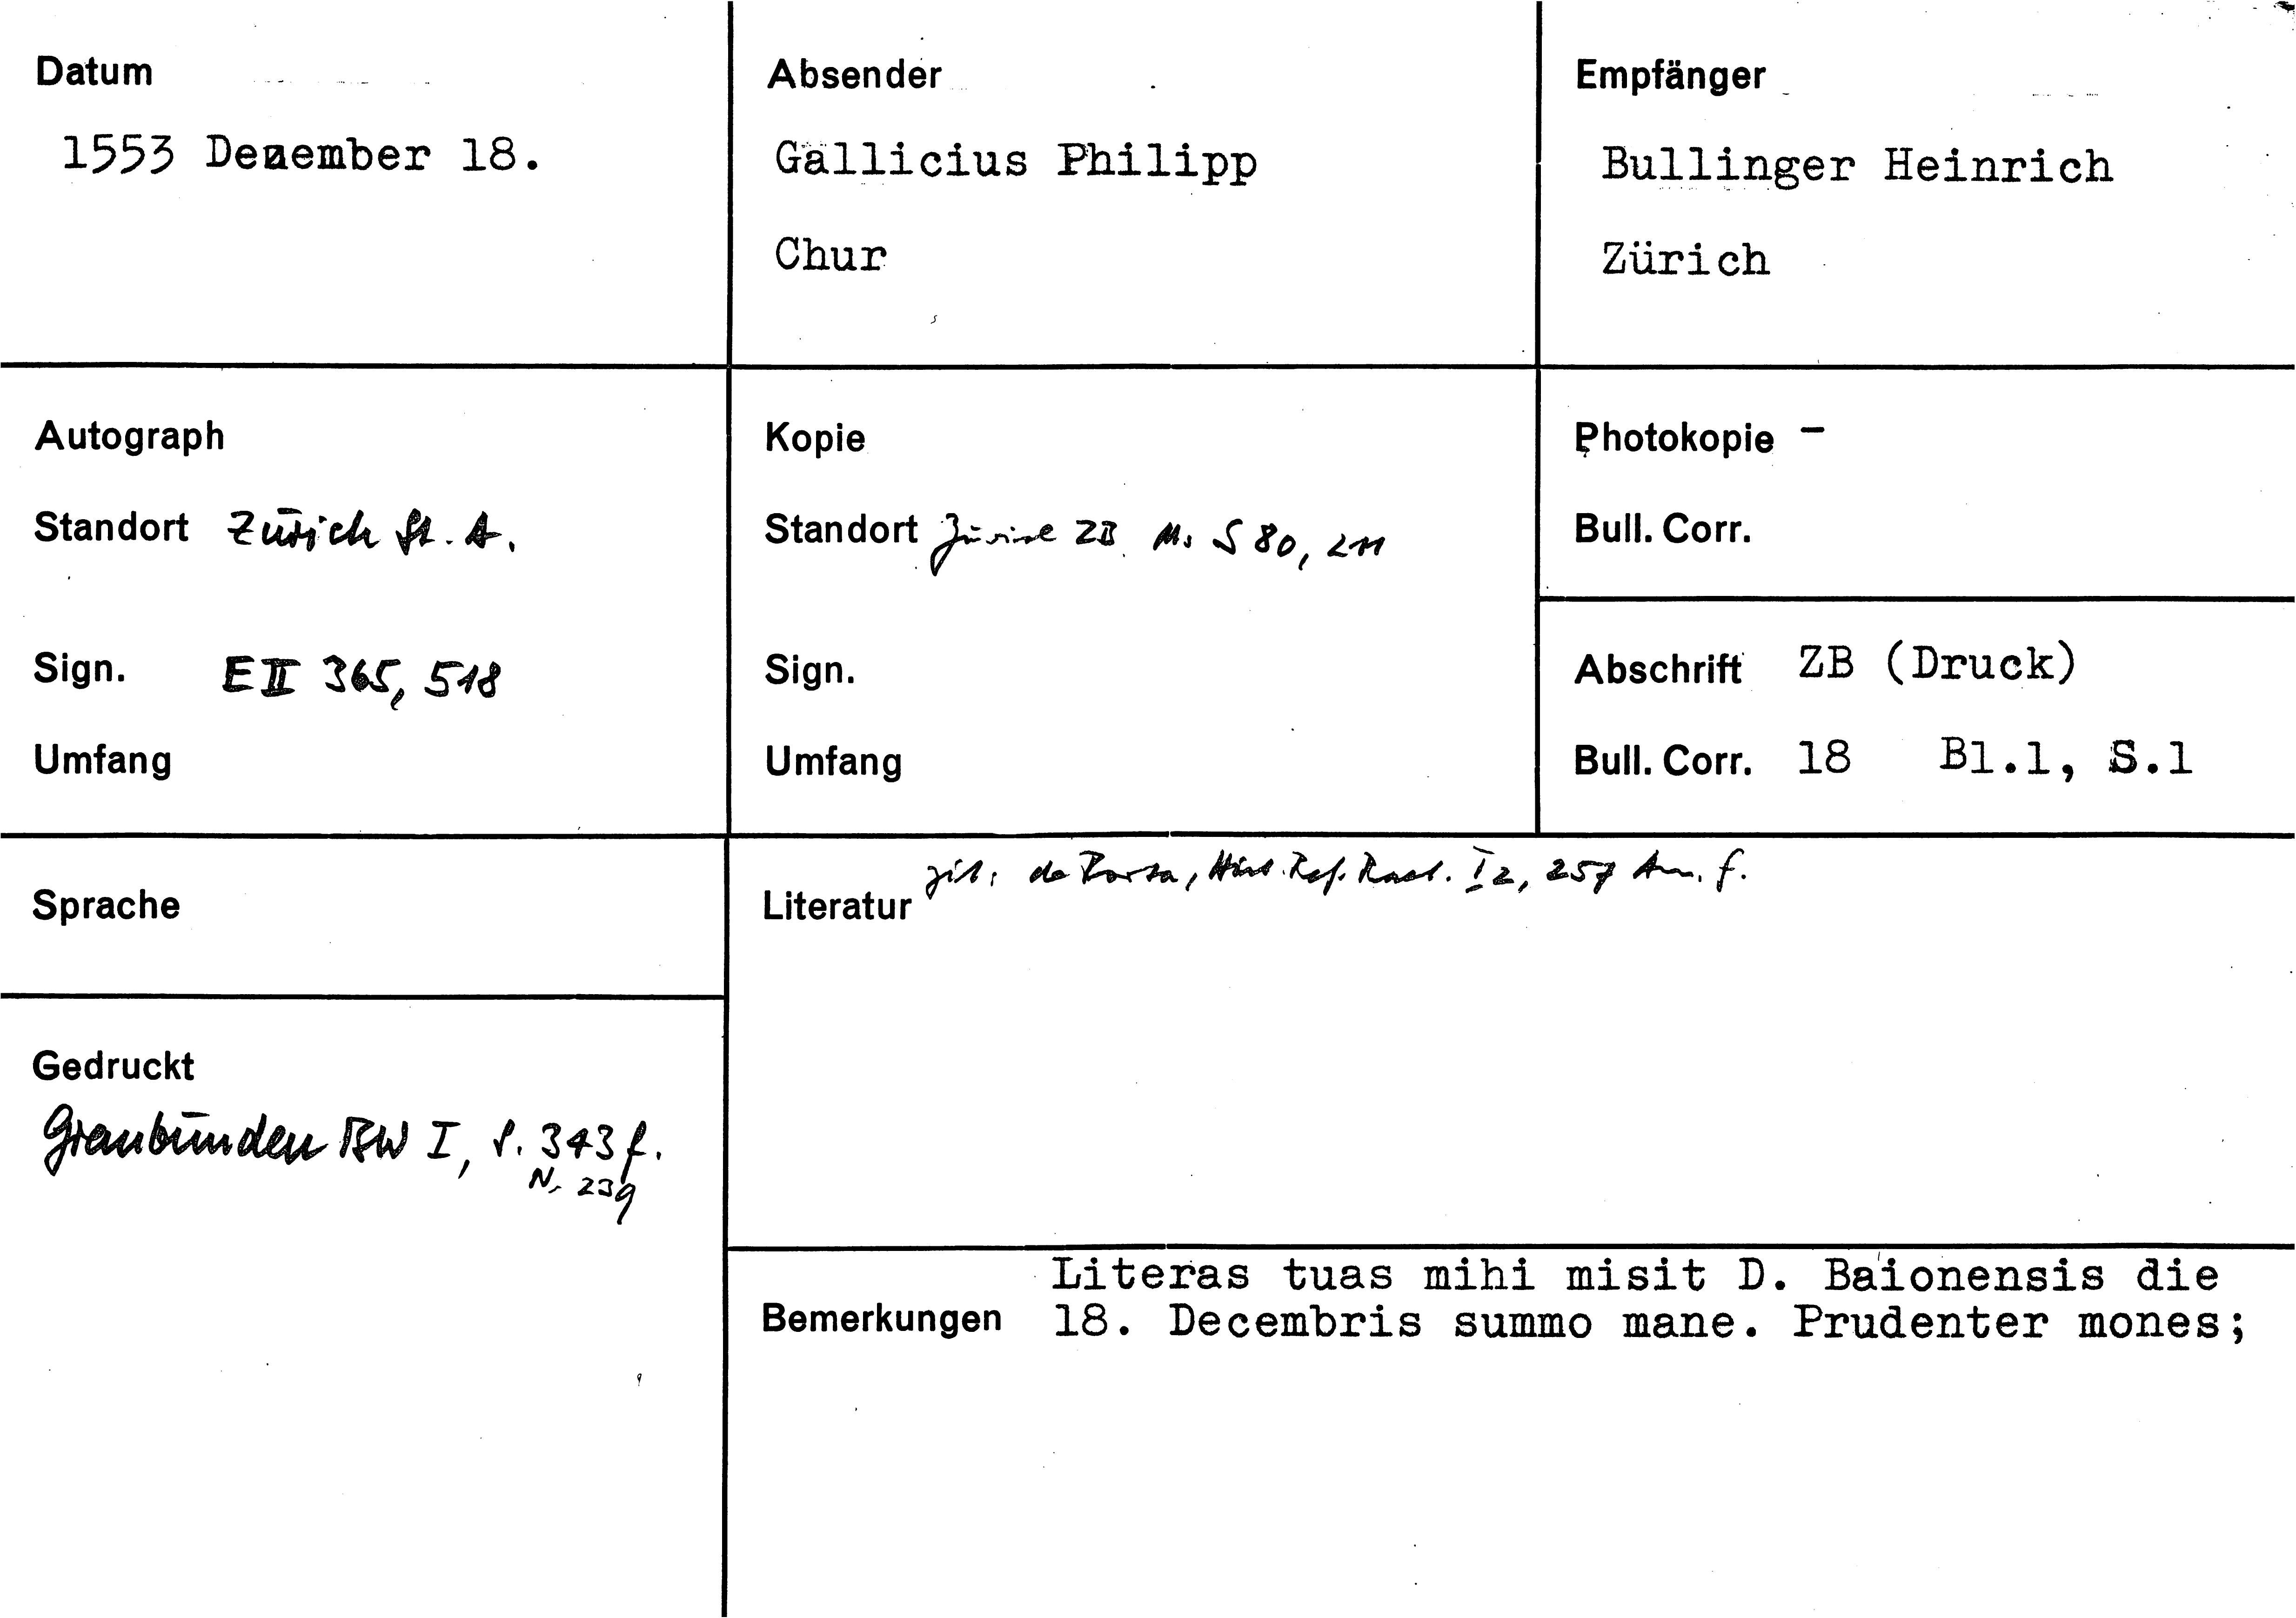 Datum
1553 Dezember 18.
Absender
Gallicius Philipp
Chur
Empfänger
Bullinger Heinrich
Zürich
Autograph
Standort Zürich St. A.
Sign. E II 365, 518
Umfang
Kopie
Standort Zürich ZB Ms S 80, 211
Sign.
Umfang
Photokopie -
Bull. Corr.
Abschrift ZB (Druck)
Bull. Corr. 18 Bl.1, S.1
Sprache
Gedruckt
Graubünden BW I, S. 343 f.
Nr 239
Literatur zit: de Porta, Hist. Ref. Raet. I 2, 257 Am. f.
Bemerkungen
Literas tuas mihi misit D. Baionensis die
18. Decembris summo mane. Prudenter mones;